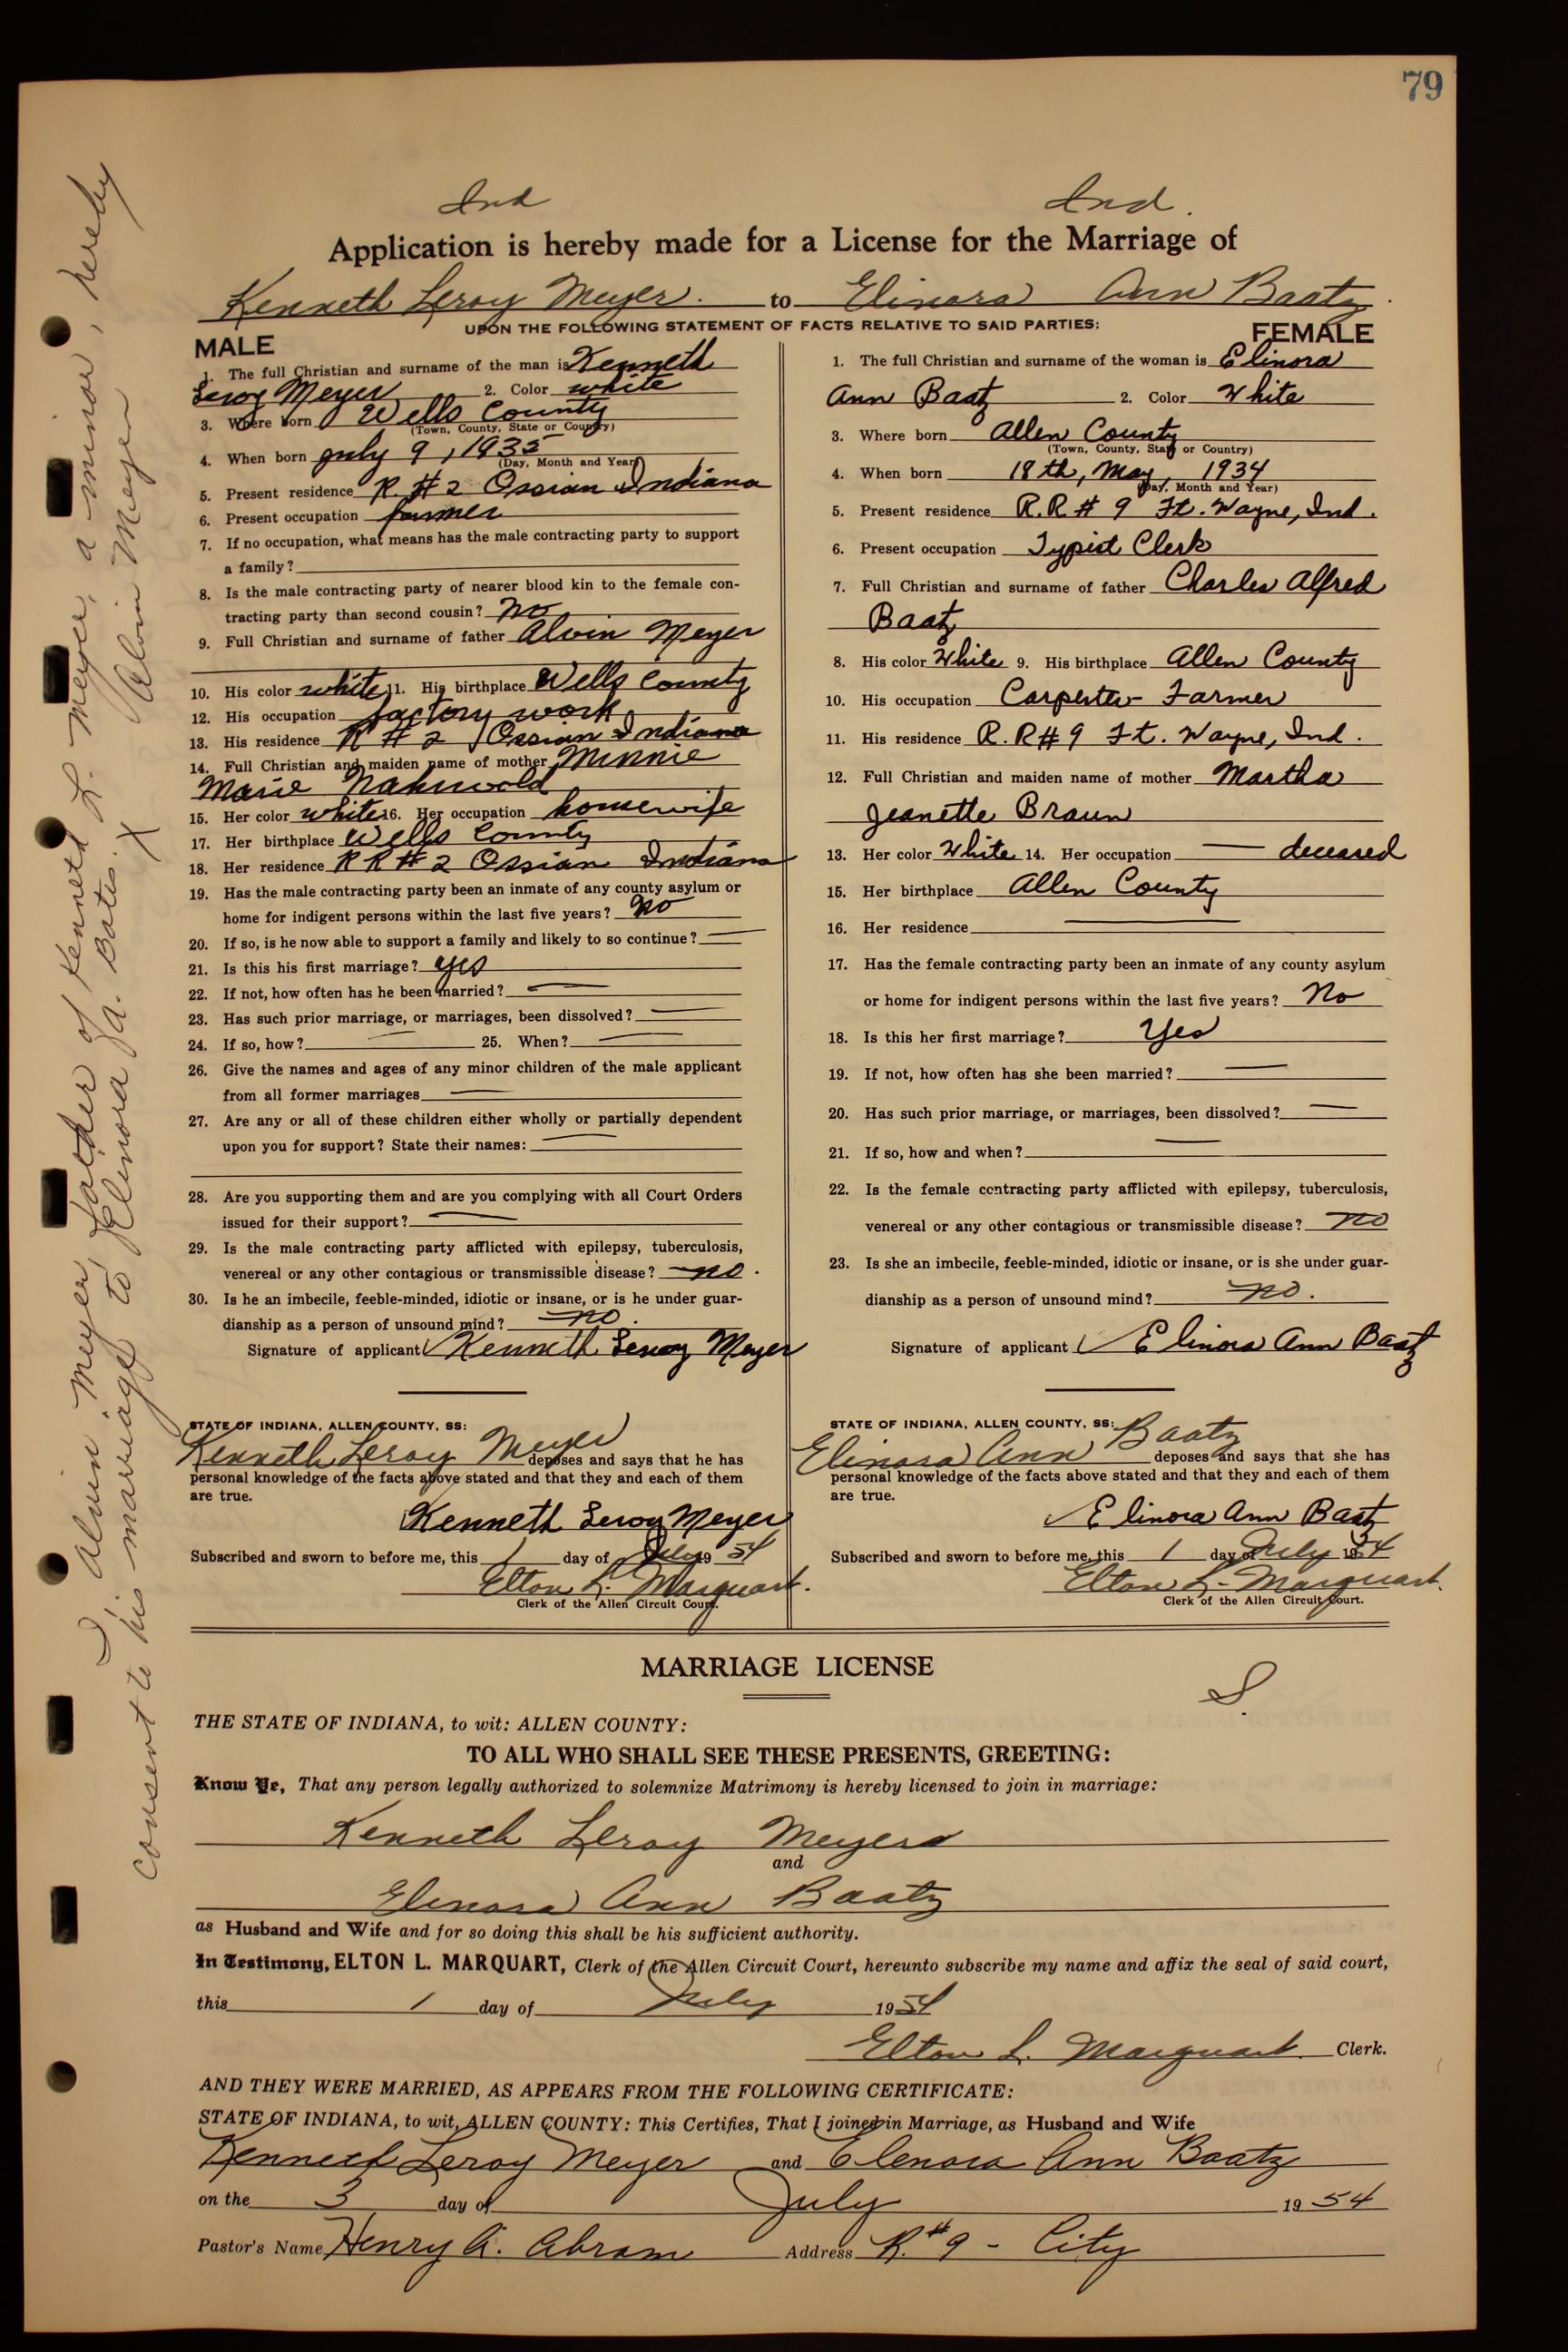 79
Ind Ind.
Application is hereby made for a License for the Marriage of
Kenneth Leroy Meyer. to Elinora Ann Baatz.
UPON THE FOLLOWING STATEMENT OF FACTS RELATIVE TO SAID PARTIES:
MALE
1. The full Christian and surname of the man is Kenneth
Leroy Meyer 2. Color white
3. Where born Wells County
(Town, County, State or Country)
4. When born July 9, 1935
(Day, Month and Year)
5. Present residence R #2 Ossian Indiana
6. Present occupation farmer
7. If no occupation, what means has the male contracting party to support
a family?
8. Is the male contracting party of nearer blood kin to the female con-
tracting party than second cousin? No
9. Full Christian and surname of father Alvin Meyer
10. His color white 11. His birthplace Wells County
12. His occupation factory work
13. His residence R #2 Ossian Indiana
14. Full Christian and maiden name of mother Minnie
Marie Nahrwold
15. Her color white 16. Her occupation housewife
17. Her birthplace Wells County
18. Her residence RR #2 Ossian Indiana
19. Has the male contracting party been an inmate of any county asylum or
home for indigent persons within the last five years? No
20. If so, is he now able to support a family and likely to so continue? —
21. Is this his first marriage? yes
22. If not, how often has he been married? —
23. Has such prior marriage, or marriages, been dissolved? —
24. If so, how? — 25. When? —
26. Give the names and ages of any minor children of the male applicant
from all former marriages —
27. Are any or all of these children either wholly or partially dependent
upon you for support? State their names: —
28. Are you supporting them and are you complying with all Court Orders
issued for their support? —
29. Is the male contracting party afflicted with epilepsy, tuberculosis,
venereal or any other contagious or transmissible disease? no.
30. Is he an imbecile, feeble-minded, idiotic or insane, or is he under guar-
dianship as a person of unsound mind? no.
Signature of applicant Kenneth Leroy Meyer
STATE OF INDIANA, ALLEN COUNTY, SS:
Kenneth Leroy Meyer deposes and says that he has
personal knowledge of the facts above stated and that they and each of them
are true.
Kenneth Leroy Meyer
Subscribed and sworn to before me, this 1 day of July 19 54
Elton L. Marquart.
Clerk of the Allen Circuit Court.
FEMALE
1. The full Christian and surname of the woman is Elinora
Ann Baatz 2. Color White
3. Where born Allen County
(Town, County, State or Country)
4. When born 18th, May, 1934
(Day, Month and Year)
5. Present residence R.R # 9 Ft. Wayne, Ind.
6. Present occupation Typist Clerk
7. Full Christian and surname of father Charles Alfred
Baatz
8. His color White 9. His birthplace Allen County
10. His occupation Carpenter - Farmer
11. His residence R.R#9 Ft. Wayne, Ind.
12. Full Christian and maiden name of mother Martha
Jeanette Braun
13. Her color White 14. Her occupation — deceased
15. Her birthplace Allen County
16. Her residence —
17. Has the female contracting party been an inmate of any county asylum
or home for indigent persons within the last five years? No
18. Is this her first marriage? Yes
19. If not, how often has she been married? —
20. Has such prior marriage, or marriages, been dissolved? —
21. If so, how and when? —
22. Is the female contracting party afflicted with epilepsy, tuberculosis,
venereal or any other contagious or transmissible disease? no
23. Is she an imbecile, feeble-minded, idiotic or insane, or is she under guar-
dianship as a person of unsound mind? no.
Signature of applicant Elinora Ann Baatz
STATE OF INDIANA, ALLEN COUNTY, SS:
Elinora Ann Baatz deposes and says that she has
personal knowledge of the facts above stated and that they and each of them
are true.
Elinora Ann Baatz
Subscribed and sworn to before me, this 1 day of July 1954
Elton L. Marquart.
Clerk of the Allen Circuit Court.
MARRIAGE LICENSE
S.
THE STATE OF INDIANA, to wit: ALLEN COUNTY:
TO ALL WHO SHALL SEE THESE PRESENTS, GREETING:
Know Ye, That any person legally authorized to solemnize Matrimony is hereby licensed to join in marriage:
Kenneth Leroy Meyers
and
Elenora Ann Baatz
as Husband and Wife and for so doing this shall be his sufficient authority.
In Testimony, ELTON L. MARQUART, Clerk of the Allen Circuit Court, hereunto subscribe my name and affix the seal of said court,
this 1 day of July 1954
Elton L. Marquart Clerk.
AND THEY WERE MARRIED, AS APPEARS FROM THE FOLLOWING CERTIFICATE:
STATE OF INDIANA, to wit, ALLEN COUNTY: This Certifies, That I joined in Marriage, as Husband and Wife
Kenneth Leroy Meyer and Elenora Ann Baatz
on the 3 day of July 19 54
Pastor's Name Henry A. Abram Address R. #9 - City
I, Alvin Meyer, father of Kenneth L. Meyer, a minor, hereby
consent to his marriage to Elenora A. Batis. X Alvin Meyer